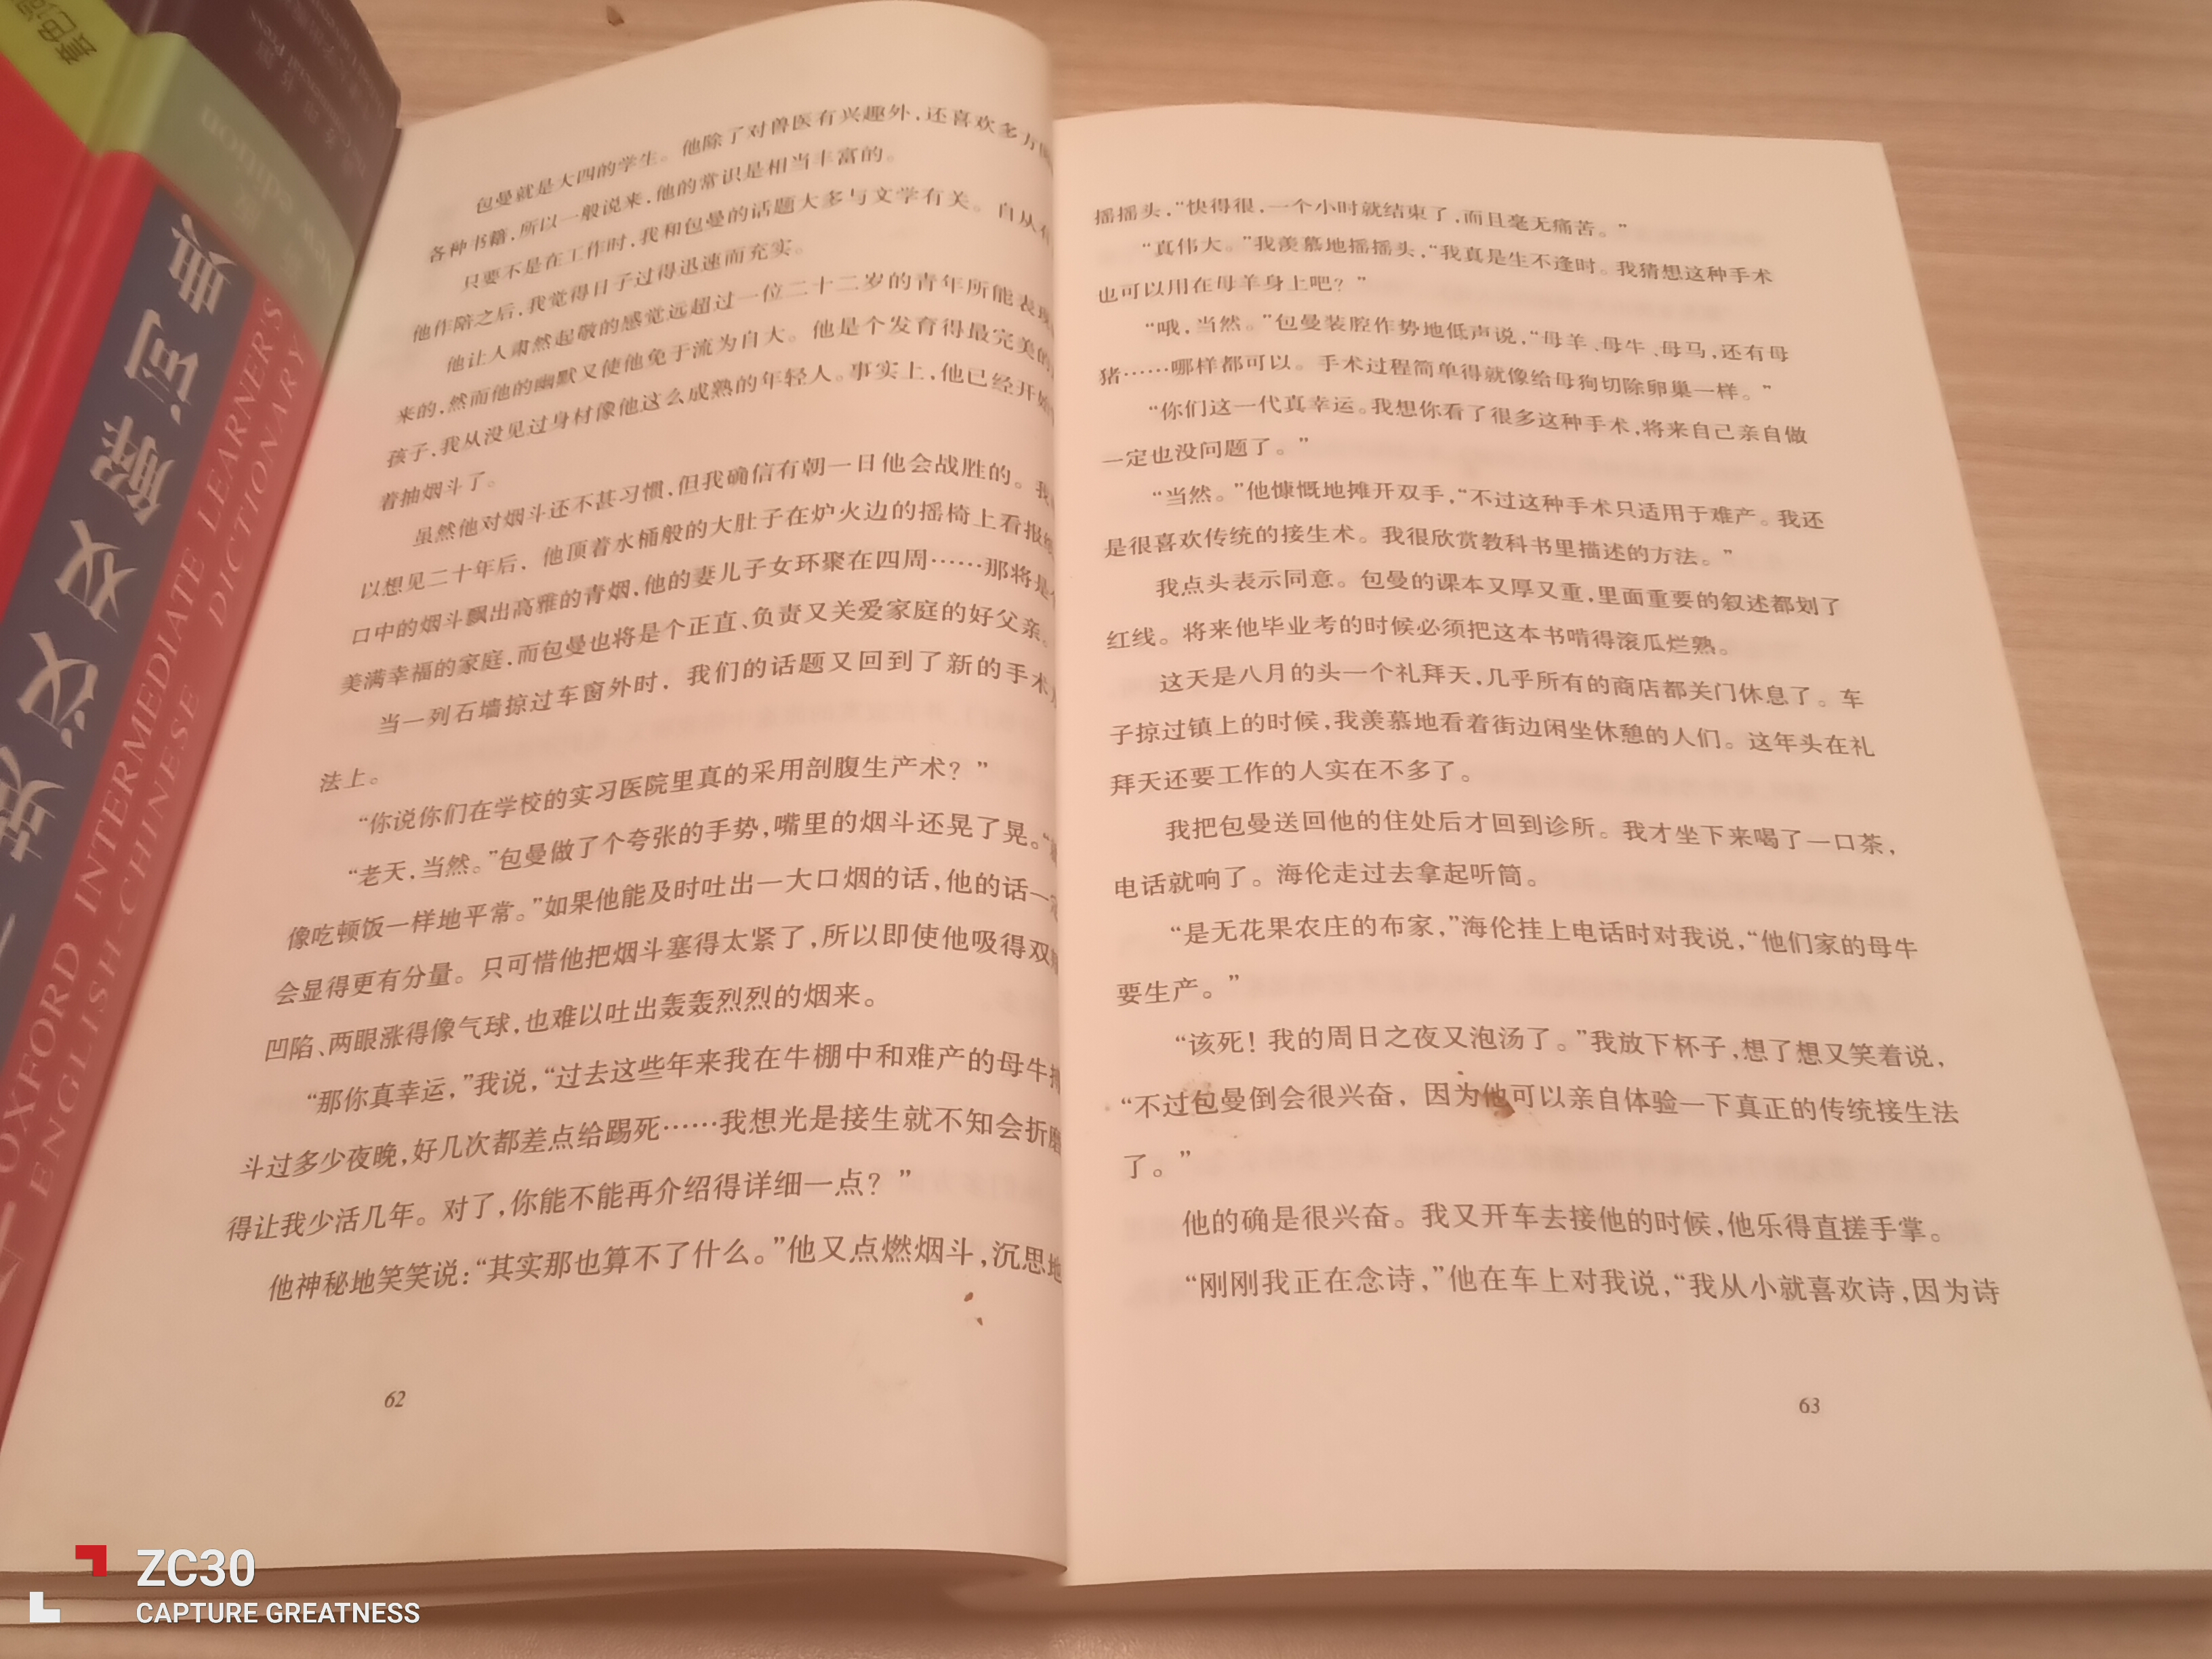 英汉双解词典
OXFORD INTERMEDIATE LEARNER'S
ENGLISH-CHINESE DICTIONARY
New edition
包曼就是大四的学生。他除了对兽医有兴趣外，还喜欢多方
各种书籍，所以一般说来，他的常识是相当丰富的。
只要不是在工作时，我和包曼的话题大多与文学有关。自从有
他作陪之后，我觉得日子过得迅速而充实。
他让人肃然起敬的感觉远超过一位二十二岁的青年所能表现
来的，然而他的幽默又使他免于流为自大。他是个发育得最完美的
孩子，我从没见过身材像他这么成熟的年轻人。事实上，他已经开始
着抽烟斗了。
虽然他对烟斗还不甚习惯，但我确信有朝一日他会战胜的。我
以想见二十年后，他顶着水桶般的大肚子在炉火边的摇椅上看报纸
口中的烟斗飘出高雅的青烟，他的妻儿子女环聚在四周……那将是
美满幸福的家庭，而包曼也将是个正直、负责又关爱家庭的好父亲。
当一列石墙掠过车窗外时，我们的话题又回到了新的手术
法上。
“你说你们在学校的实习医院里真的采用剖腹生产术？”
“老天，当然。”包曼做了个夸张的手势，嘴里的烟斗还晃了晃。“
像吃顿饭一样地平常。”如果他能及时吐出一大口烟的话，他的话一
会显得更有分量。只可惜他把烟斗塞得太紧了，所以即使他吸得双
凹陷、两眼涨得像气球，也难以吐出轰轰烈烈的烟来。
“那你真幸运，”我说，“过去这些年来我在牛棚中和难产的母牛
斗过多少夜晚，好几次都差点给踢死……我想光是接生就不知会折磨
得让我少活几年。对了，你能不能再介绍得详细一点？”
他神秘地笑笑说：“其实那也算不了什么。”他又点燃烟斗，沉思地
62
摇摇头，“快得很，一个小时就结束了，而且毫无痛苦。”
“真伟大。”我羡慕地摇摇头，“我真是生不逢时。我猜想这种手术
也可以用在母羊身上吧？”
“哦，当然。”包曼装腔作势地低声说，“母羊、母牛、母马，还有母
猪……哪样都可以。手术过程简单得就像给母狗切除卵巢一样。”
“你们这一代真幸运。我想你看了很多这种手术，将来自己亲自做
一定也没问题了。”
“当然。”他慷慨地摊开双手，“不过这种手术只适用于难产。我还
是很喜欢传统的接生术。我很欣赏教科书里描述的方法。”
我点头表示同意。包曼的课本又厚又重，里面重要的叙述都划了
红线。将来他毕业考的时候必须把这本书啃得滚瓜烂熟。
这天是八月的头一个礼拜天，几乎所有的商店都关门休息了。车
子掠过镇上的时候，我羡慕地看着街边闲坐休憩的人们。这年头在礼
拜天还要工作的人实在不多了。
我把包曼送回他的住处后才回到诊所。我才坐下来喝了一口茶，
电话就响了。海伦走过去拿起听筒。
“是无花果农庄的布家，”海伦挂上电话时对我说，“他们家的母牛
要生产。”
“该死！我的周日之夜又泡汤了。”我放下杯子，想了想又笑着说，
“不过包曼倒会很兴奋，因为他可以亲自体验一下真正的传统接生法
了。”
他的确是很兴奋。我又开车去接他的时候，他乐得直搓手掌。
“刚刚我正在念诗，”他在车上对我说，“我从小就喜欢诗，因为诗
63
ZC30
CAPTURE GREATNESS